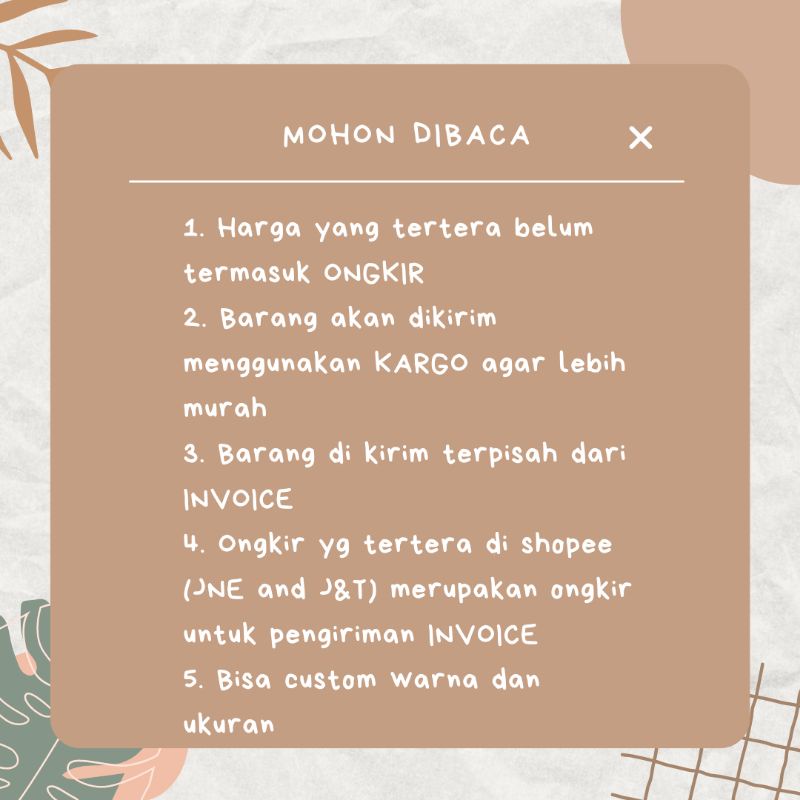 MOHON DIBACA
1. Harga yang tertera belum
termasuk ONGKIR
2. Barang akan dikirim
menggunakan KARGO agar lebih
murah
3. Barang di kirim terpisah dari
INVOICE
4. Ongkir yg tertera di shopee
(JNE and J&T) merupakan ongkir
untuk pengiriman INVOICE
5. Bisa custom warna dan
ukuran